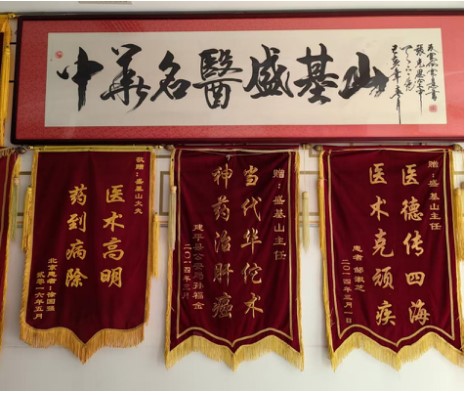 中华名醫盛基山
敬赠：盛基山大夫
医术高明
药到病除
北京患者：徐国强
贰零一六年五月
赠：盛基山主任
当代华佗术
神药治肝癌
二〇一四年元月
赠：盛基山主任
医德传四海
医术克顽疾
二〇一四年三月一日